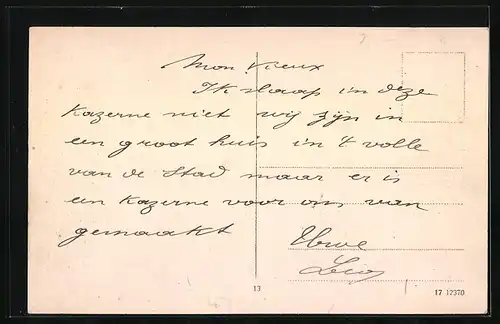 Mon Vieux
Ik slaap in deze
Kazerne niet wij zijn in
een groot huis in 't volle
van de Stad maar er is
een Kazerne voor ons van
gemaakt
Uwe
Leo
13
17 12370